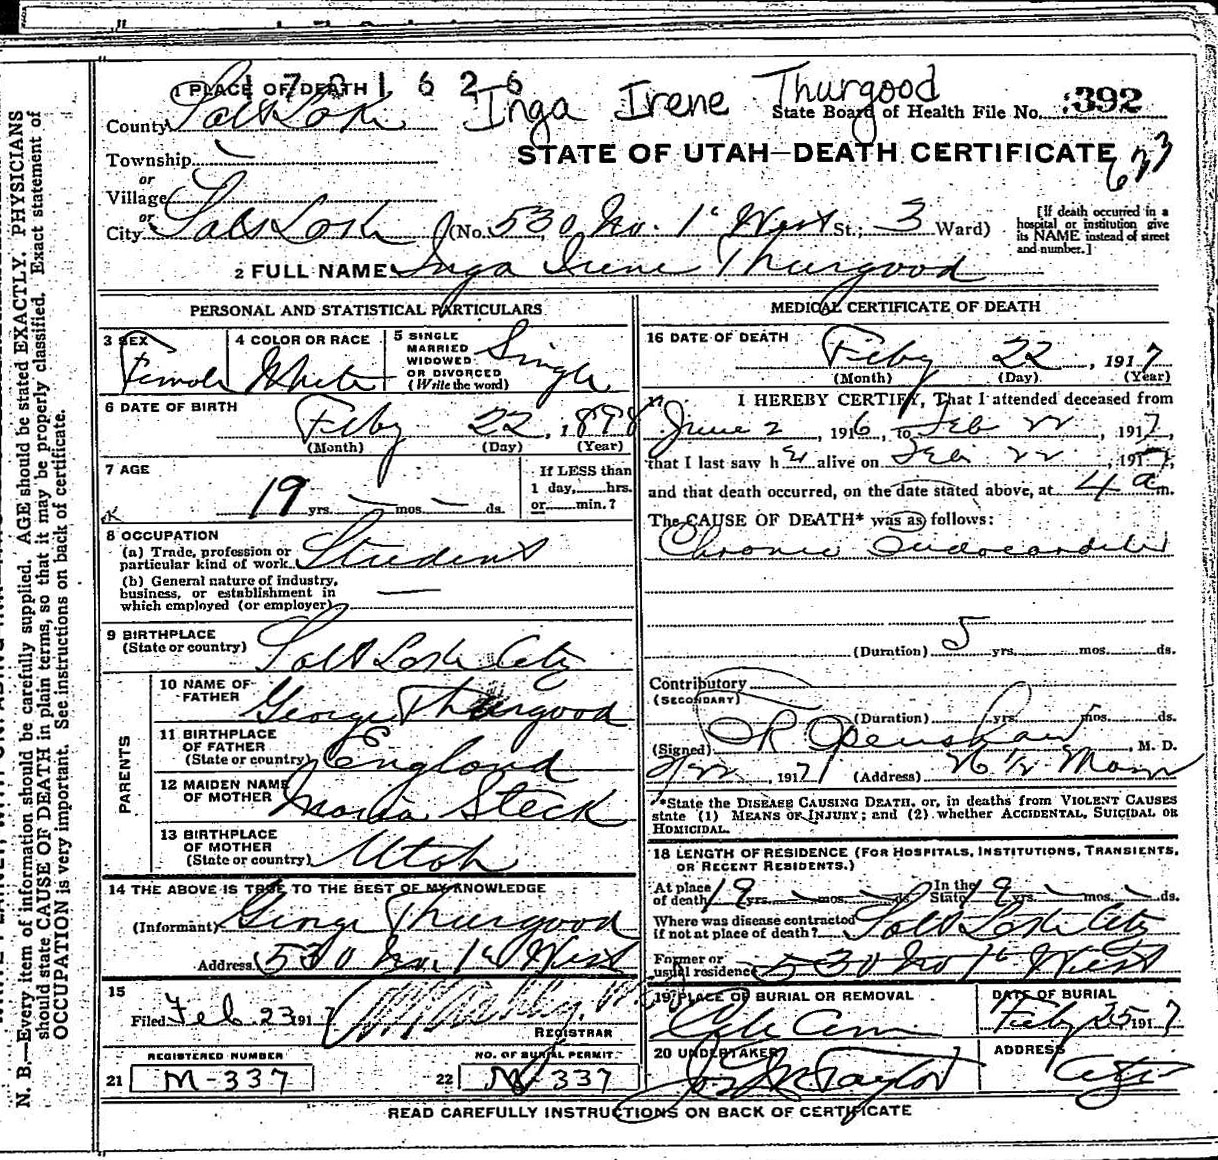 1701626
Inga Irene Thurgood
1 PLACE OF DEATH
County Salt Lake
State Board of Health File No. 392
Township
or
Village
STATE OF UTAH—DEATH CERTIFICATE
or
City Salt Lake (No. 530 No. 1st West St.; 3 Ward)
[If death occurred in a
hospital or institution give
its NAME instead of street
and number.]
2 FULL NAME Inga Irene Thurgood
PERSONAL AND STATISTICAL PARTICULARS
3 SEX
Female
4 COLOR OR RACE
White
5 SINGLE
MARRIED
WIDOWED
OR DIVORCED
(Write the word)
Single
6 DATE OF BIRTH
Feby 22, 1898
(Month) (Day) (Year)
7 AGE
19 yrs. — mos. — ds.
If LESS than
1 day, hrs.
or min.?
8 OCCUPATION
(a) Trade, profession or
particular kind of work Student
(b) General nature of industry,
business, or establishment in
which employed (or employer)
9 BIRTHPLACE
(State or country) Salt Lake City
PARENTS
10 NAME OF
FATHER George Thurgood
11 BIRTHPLACE
OF FATHER
(State or country) England
12 MAIDEN NAME
OF MOTHER Maria Steck
13 BIRTHPLACE
OF MOTHER
(State or country) Utah
14 THE ABOVE IS TRUE TO THE BEST OF MY KNOWLEDGE
(Informant) George Thurgood
Address 530 No. 1st West
15
Filed Feb 23 1917
REGISTRAR
REGISTERED NUMBER
21 M-337
NO. OF BURIAL PERMIT
22 M-337
MEDICAL CERTIFICATE OF DEATH
16 DATE OF DEATH
Feby 22, 1917
(Month) (Day) (Year)
17 I HEREBY CERTIFY, That I attended deceased from
June 2, 1916, to Feb 22, 1917,
that I last saw her alive on Feb 22, 1917,
and that death occurred, on the date stated above, at 4 a m.
The CAUSE OF DEATH* was as follows:
Chronic Endocarditis
(Duration) 5 yrs. mos. ds.
Contributory
(SECONDARY)
(Duration) yrs. mos. ds.
(Signed) Openshaw, M. D.
2/22, 1917 (Address) 26 1/2 Main
*State the DISEASE CAUSING DEATH, or, in deaths from VIOLENT CAUSES
state (1) MEANS OF INJURY; and (2) whether ACCIDENTAL, SUICIDAL OR
HOMICIDAL.
18 LENGTH OF RESIDENCE (FOR HOSPITALS, INSTITUTIONS, TRANSIENTS,
OR RECENT RESIDENTS.)
At place
of death 19 yrs. — mos. — ds. In the
State 19 yrs. — mos. — ds.
Where was disease contracted
if not at place of death? Salt Lake City
Former or
usual residence 530 No 1st West
19 PLACE OF BURIAL OR REMOVAL
City Cem
DATE OF BURIAL
Feby 25 1917
20 UNDERTAKER
Taylor
ADDRESS
City
READ CAREFULLY INSTRUCTIONS ON BACK OF CERTIFICATE
N. B.—Every item of information should be carefully supplied. AGE should be stated EXACTLY. PHYSICIANS
should state CAUSE OF DEATH in plain terms, so that it may be properly classified. Exact statement of
OCCUPATION is very important. See instructions on back of certificate.